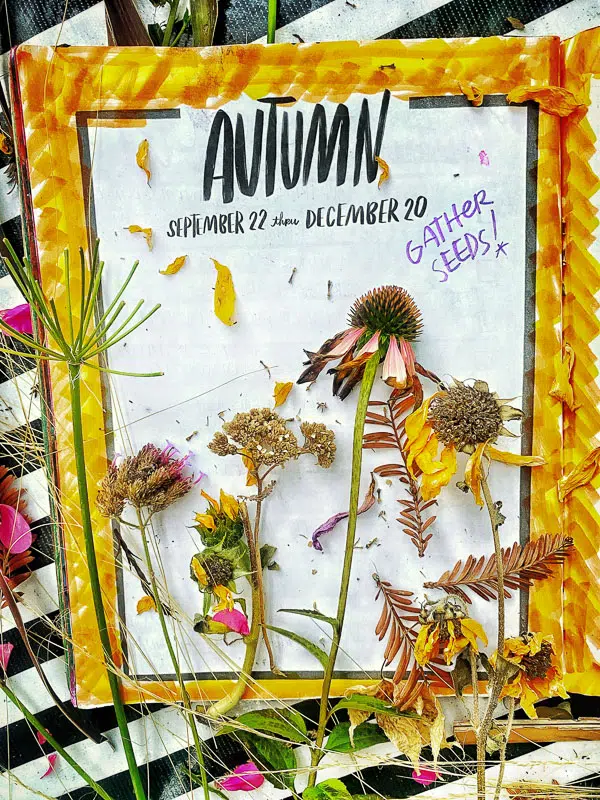 AUTUMN
SEPTEMBER 22 thru DECEMBER 20
GATHER
SEEDS!*